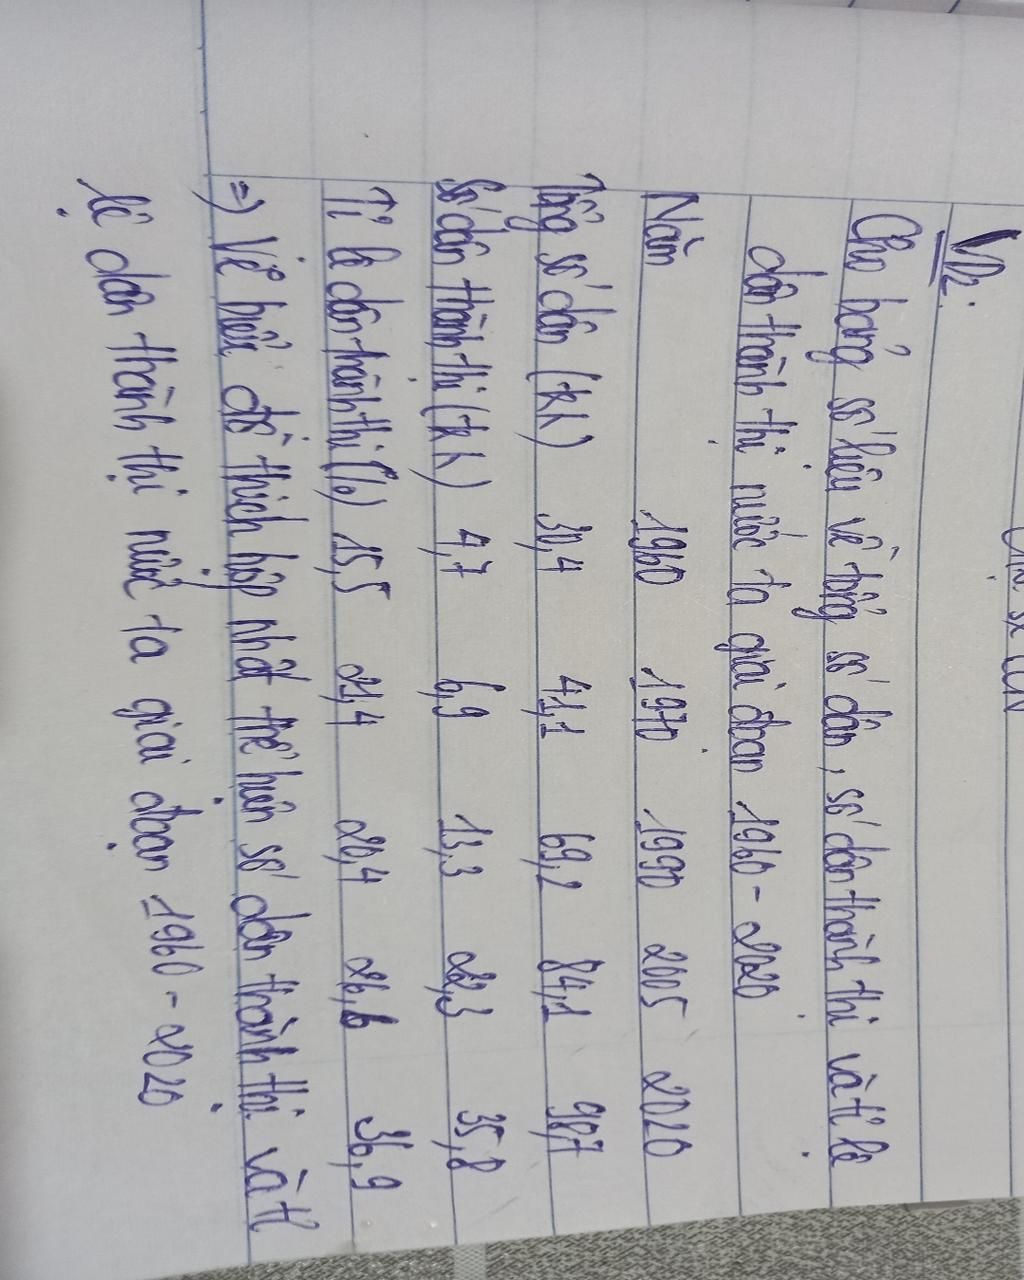 VD2:
Cho bảng số liệu về tổng số dân, số dân thành thị và tỉ lệ
dân thành thị nước ta giai đoạn 1960 - 2020
Năm 1960 1970 1990 2005 2020
Tổng số dân (tr) 30,4 41,1 69,2 84,1 98,7
Số dân thành thị (tr) 4,7 6,9 13,3 22,3 35,8
Tỉ lệ dân thành thị (%) 15,5 21,4 20,4 26,6 36,9
=) Vẽ biểu đồ thích hợp nhất thể hiện số dân thành thị và tỉ
lệ dân thành thị nước ta giai đoạn 1960 - 2020